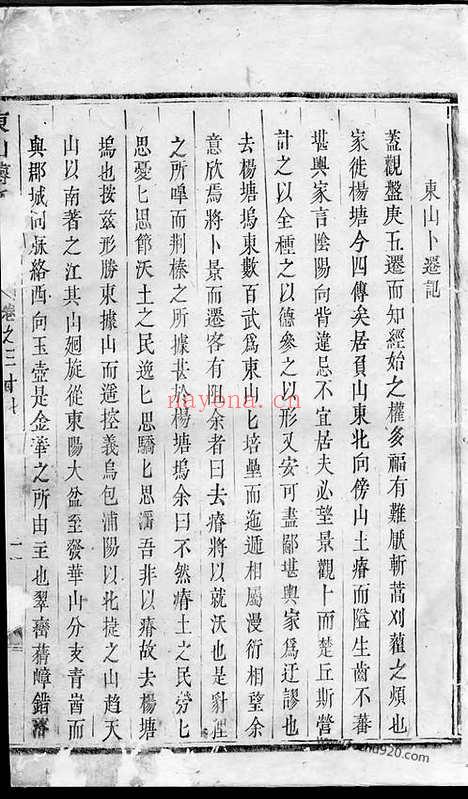 東山卜遷記
蓋觀盤庚五遷而知經始之權多福有難厭斬蒿刈蓷之煩也
家徙楊塘今四傳矣居負山東北向傍山土瘠而隘生齒不蕃
堪輿家言陰陽向背違忌不宜居夫必望景觀卜而楚丘斯營
計之以全種之以德參之以形又安可盡鄙堪輿家為迂謬也
去楊塘塢東數百武為東山匕培壘而迤遞相屬漫衍相望余
意欣焉將卜景而遷客有阻余者曰去瘠將以就沃也是豺狸
之所嘷而荆榛之所據甚於楊塘塢余曰不然瘠土之民勞匕
思憂匕思節沃土之民逸匕思驕匕思濡吾非以瘠故去楊塘
塢也按茲形勝東據山而遥控義烏包浦陽以北捷之山趋天
山以南著之江其山廻旋從東陽大盆至發華山分支青崮而
與郡城同脉絡西向玉壺是金華之所由主也翠巒蒨嶂錯落
東山
卷之三
nayona.cn